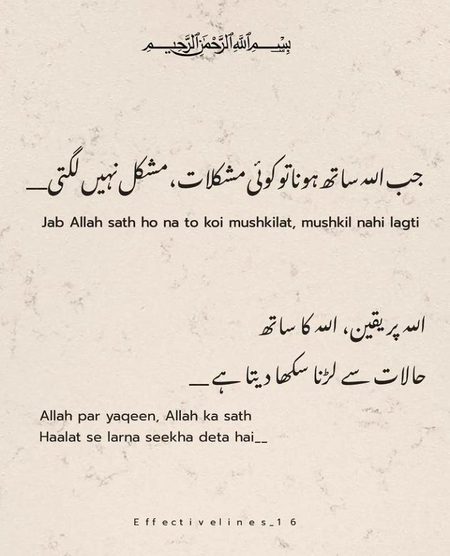 بِسْمِ اللهِ الرَّحْمٰنِ الرَّحِيْمِ
جب اللہ ساتھ ہو نا تو کوئی مشکلات، مشکل نہیں لگتی__
Jab Allah sath ho na to koi mushkilat, mushkil nahi lagti
اللہ پر یقین، اللہ کا ساتھ
حالات سے لڑنا سکھا دیتا ہے__
Allah par yaqeen, Allah ka sath
Haalat se larna seekha deta hai__
Effectivelines_16